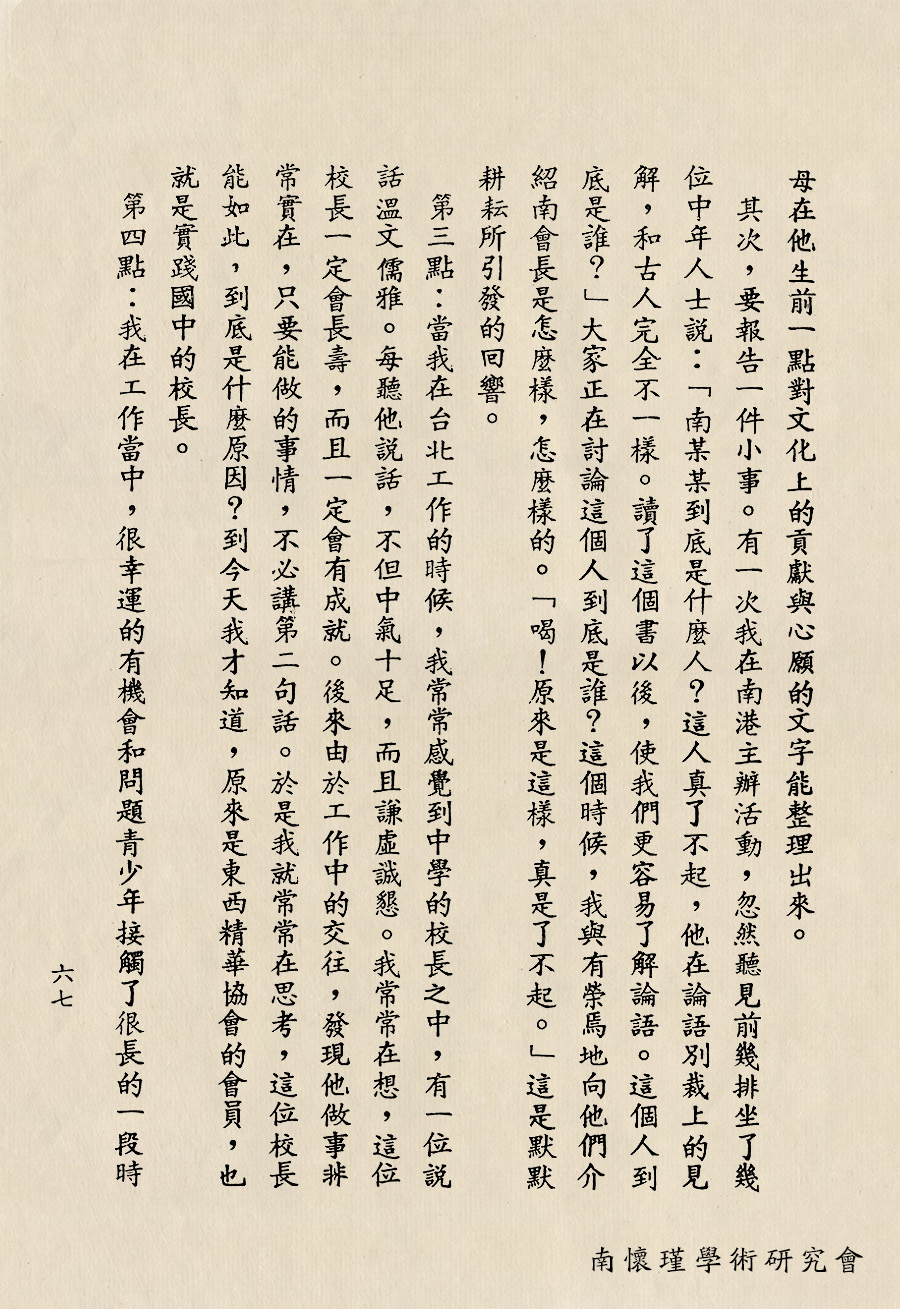 母在他生前一點對文化上的貢獻與心願的文字能整理出來。
其次，要報告一件小事。有一次我在南港主辦活動，忽然聽見前幾排坐了幾
位中年人士說：「南某某到底是什麼人？這人真了不起，他在論語別裁上的見
解，和古人完全不一樣。讀了這個書以後，使我們更容易了解論語。這個人到
底是誰？」大家正在討論這個人到底是誰？這個時候，我與有榮焉地向他們介
紹南會長是怎麼樣，怎麼樣的。「喝！原來是這樣，真是了不起。」這是默默
耕耘所引發的回響。
第三點：當我在台北工作的時候，我常常感覺到中學的校長之中，有一位說
話溫文儒雅。每聽他說話，不但中氣十足，而且謙虛誠懇。我常常在想，這位
校長一定會長壽，而且一定會有成就。後來由於工作中的交往，發現他做事非
常實在，只要能做的事情，不必講第二句話。於是我就常常在思考，這位校長
能如此，到底是什麼原因？到今天我才知道，原來是東西精華協會的會員，也
就是實踐國中的校長。
第四點：我在工作當中，很幸運的有機會和問題青少年接觸了很長的一段時
六七
南懷瑾學術研究會